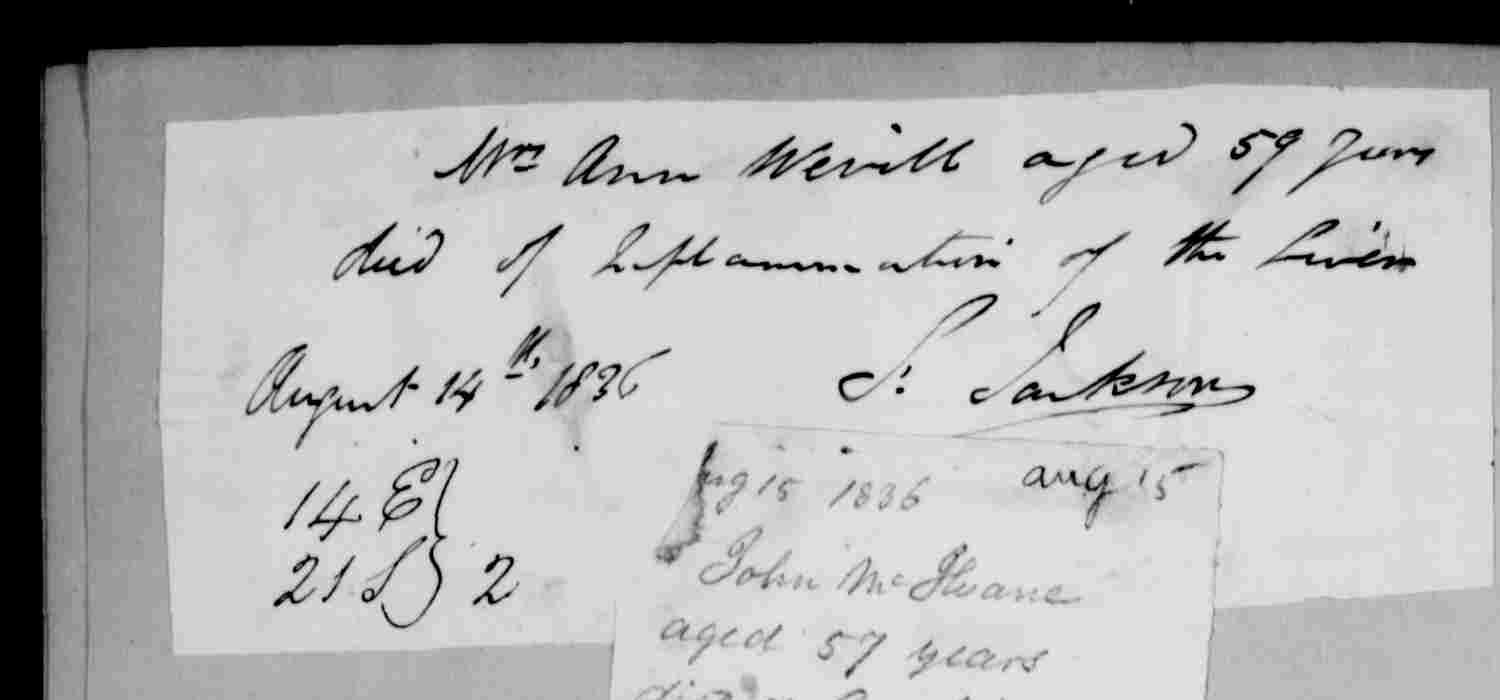 Mrs Ann Wevill aged 59 Years
died of Inflammation of the Liver
August 14th, 1836 S. Jackson
14 E
21 S } 2
Aug 15 1836 aug 15
John Mc Ilvane
aged 57 years